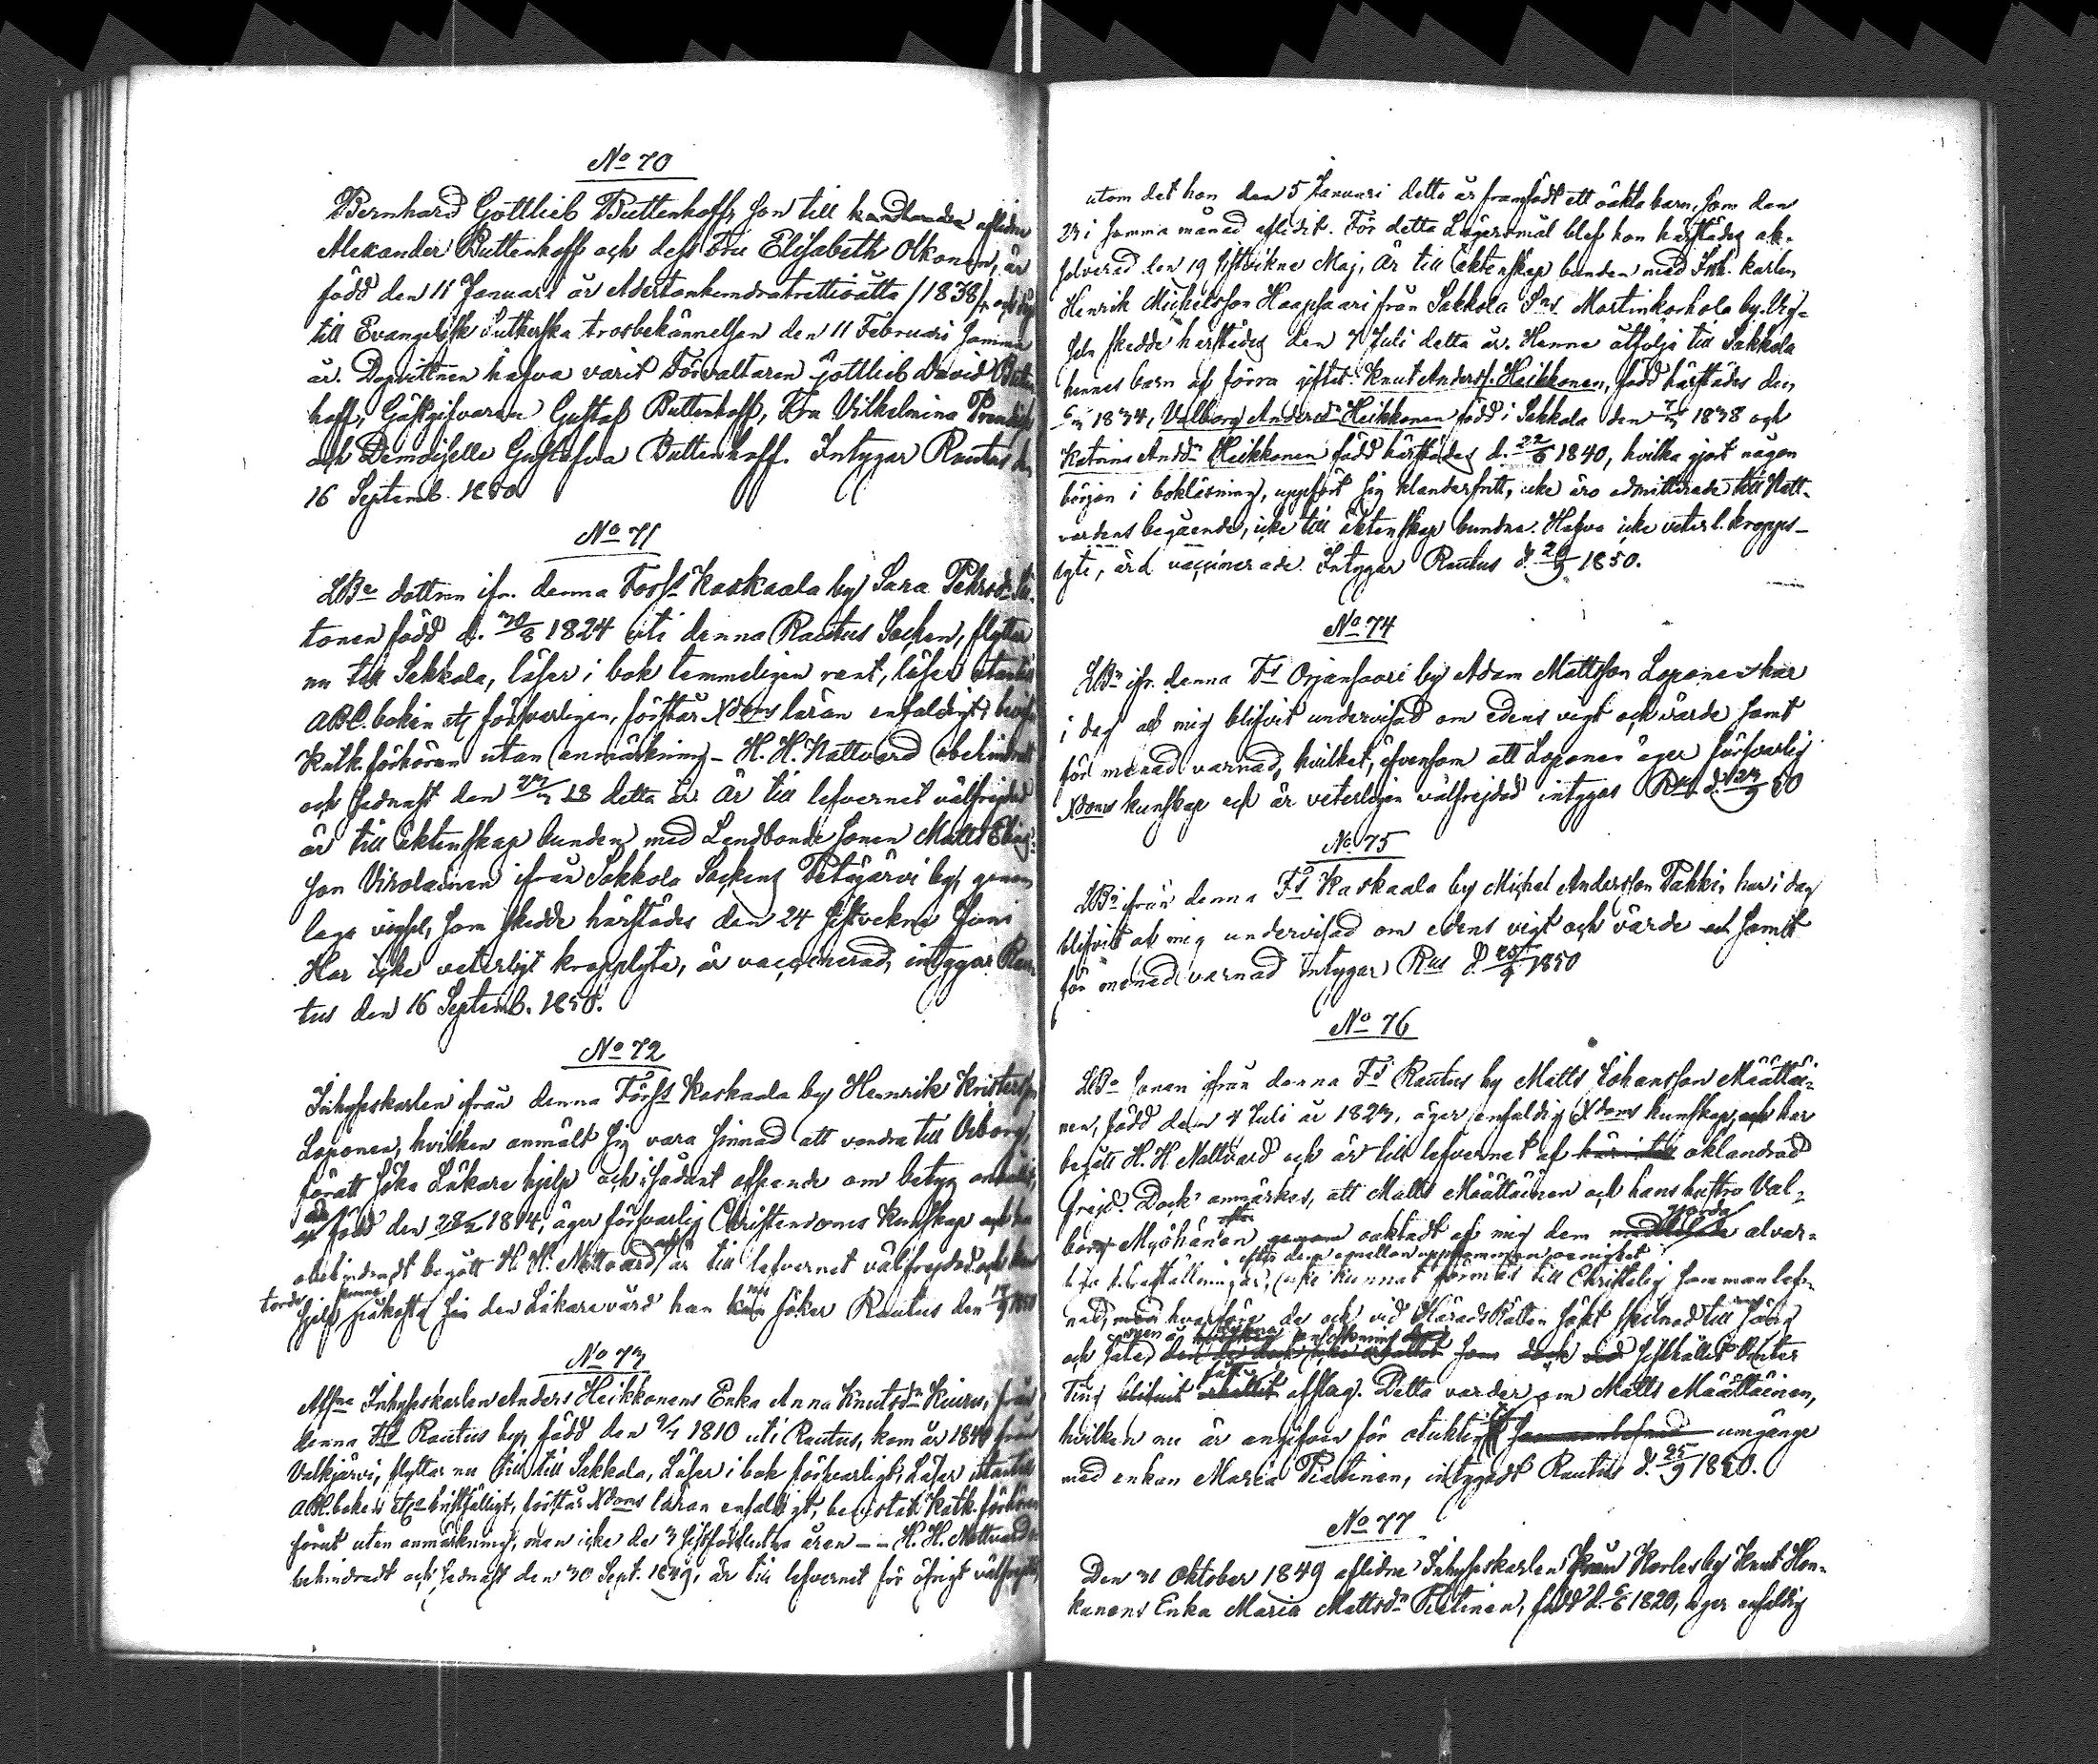 No 70
Bernhard Gottlieb Buttenhoff, son till handlanden aflidne
Alexander Buttenhoff och dess Fru Elisabeth Olkonen, är
född den 11 Januari år Adertonhundratrettioåtta /1838/
till Evangelisk Lutherska trosbekännelsen den 11 Februari samma
år. Dopvittnen hafva varit Förvaltaren Gottlieb David Butten
hoff, Gästgifvaren Gustaf Buttenhoff, Fru Vilhelmina
och Demoiselle Gustafva Buttenhoff. Intygar Rautus den
16 Septemb. 1850
No 71
LBe dottren ifr. denna Förss Kaskaala by Sara Pehrsdr
tonen född d. 30/8 1824 uti denna Rautus Socken, flyttar
nu till Sakkola, läser i bok temmeligen rent, läser utantill
ABC boken etc försvarligen, förstår Xdoms läran enfaldigt,
Katk. förhören utan anmärkning - H. H. Nattvard obehindradt
och sednast den detta år. Är till lefvernet välfrejdad
är till äktenskap bunden med Landbonde sonen Matts
son Virolainen ifrån Sakkola Sockens Petäjärvi by, genom
laga vigsel, som skedde härstädes den 24 sistvekne Juni
Har icke veterligt kropplyte, är vaccinerad, intygar Rau
tus den 16 Septemb. 1850.
No 72
Inhyseskarlen ifrån denna Förss Kaskaala by Hennrik Kristersson
Loponen, hvilken anmält sig vara sinnad att vandra till Viborg,
föratt söka Läkare hjelp och i sådant afseende om betyg anhållit,
är född den 28/2 1814, äger försvarlig Christendoms kunskap och har
obehindradt begått H. H. Nattvard är till lefvernet välfrejdad och
torde kunna
hjelp den Läkarevård han söker Rautus den 17/9 1850
No 73
Aflne Inhyseskarlen Anders Heikkonens Enka Anna Knutsdr Kiuru, från
denna Fs Rautus by, född den 9/7 1810 uti Rautus, kom år 1840 från
Valkjärvi, flyttar nu till Sakkola, Läser i bok försvarligt, Läser utantill
ABC boken etc bristfälligt, förstår Xdoms läran enfaldigt, bevistat Katk. förhören
förut utan anmärkning, men icke de 3 sistförflutna åren -- H. H. Nattvard o
behindradt och sednast den 30 Sept. 1849, är till lefvernet för öfrigt välfrejdad,
utom det hon den 5 Januari detta år framfödt ett oäkta barn, som den
23 i samma månad aflidit. För detta Lägersmål blef hon härstädes ab-
solverad den 19 sistvikne Maj, Är till äktenskap bunden med Inh. karlen
Henrik Michelsson Haapsaari från Sakkola Sns Martinkorhola by. Vig-
seln skedde härstädes den 7 Juli detta år. Henne åtfölja till Sakkola
hennes barn af förra giftet: Knut Anderss. Heikkonen, född härstädes den
1834, Valborg Andersdr Heikkonen född i Sakkola den 1838 och
Katrina Andsdr Heikkonen född härstädes d. 22/6 1840, hvilka gjort någon
början i bokläsning, uppfört sig klanderfritt, icke äro admitterade till Natt-
vardens begående, icke till äktenskap bundna. Hafva icke veterl. kropps-
lyte, äro vaccinerade. Intygar Rautus d. 20/9 1850.
No 74
LBn ifr. denna Fs Orjansaari by Adam Mattsson Loponen har
i dag af mig blifvit undervisad om edens vigt och värde samt
för mened varnad, hvilket, äfvensom att Loponen äger försvarlig
Xdoms kunskap och är veterligen välfrejdad intygas Rus d. 23/9 50
No 75
LBn ifrån denna Fs Kaskaala by Michel Andersson Pahki, har i dag
blifvit af mig undervisad om edens vigt och värde och samt
för mened varnad intygar Rus d. 1850
No 76
LBe sonen ifrån denna Fs Rautus by Matts Johansson Määttäi-
nen, född den 4 Juli år 1823, äger enfaldig Xdoms kunskap, och har
begått H. H Nattvard och är till lefvernet af härintill oklandrad
frejd. Dock anmärkes, att Matts Määttäinen och hans hustro Val-
borg Myöhänen genom oaktadt af mig dem gjorda alvar-
efter dem emellan uppkommen oenighet
liga föreställningar, icke kunnat förmås till Christelig sammanlef-
nad, hvarföre de ock vid HäradsRätten sökt skilnad till säng
och säte, som dock vid sisthållet Vinter
Ting blifvit afslag. Detta varder om Matts Määttäinen,
hvilken nu är angifven för otuktigt sammanlefnad umgänge
med enkan Maria Pietinen, intygadt Rautus d. 25/9 1850.
No 77
Den 31 Oktober 1849 aflidne Inhyseskarlen från Korles by Knut Hon-
kanens Enka Maria Mattsdr Pietinen, född d. 1820, äger enfaldig